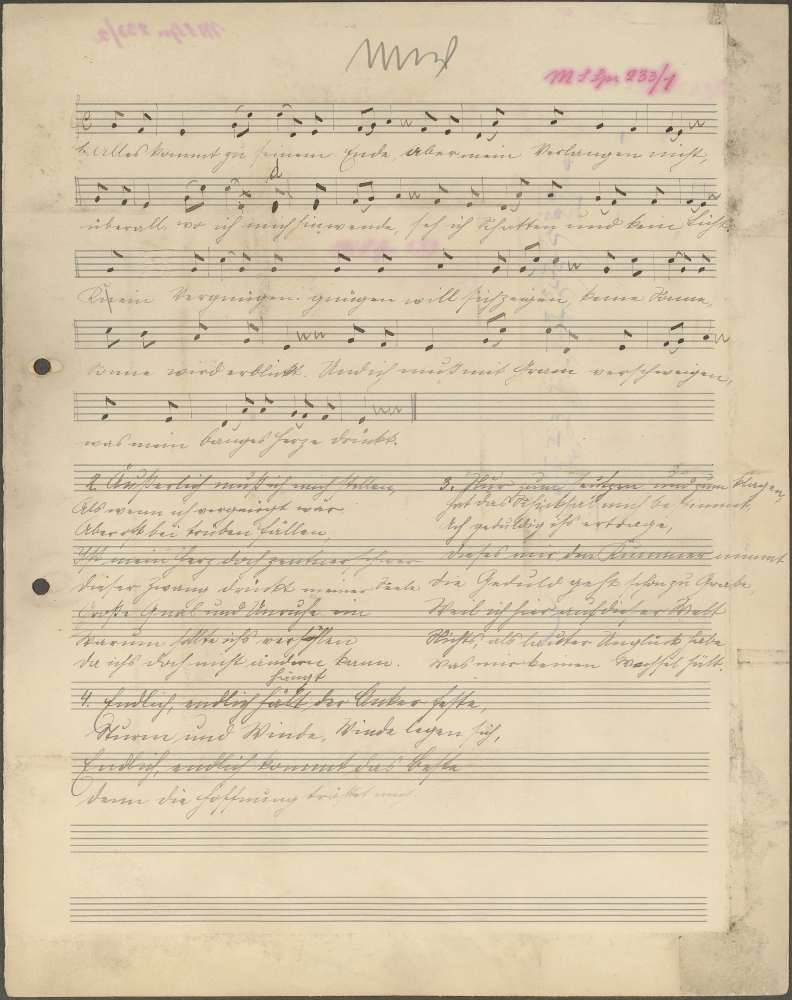 MS Spr 233/1
1. Alles kommt zu seinem Ende, aber mein Verlangen nicht,
d
überall, wo ich mich hinwende, seh ich Schatten und kein Licht.
Kein Vergnügen. gnügen will sich zeigen, keine Sonne,
Sonne wird erblickt. Und ich muß mit Gram verschweigen,
was mein banges Herze drückt.
2. Äußerlich muß ich mich stellen,
Als wenn ich vergnügt war
Aber oft bei trüben Fällen,
Ist mein Herz doch zentner schwer
Dieser Zwang drückt meiner Seele
Große Qual und Unruhe ein
Warum sollte ichs verhehlen
Da ichs doch nicht ändern kann.
3. Nur zum Seufzen und zum Klagen,
hat das Schicksal mich bestimmt,
Ich geduldig ihs ertrage,
dieses mir den Kummer nimmt
Die Geduld geht schon zu Grabe,
Weil ich hier auf dieser Welt
Nichts, als lauter Unglück habe
Was mir keinen Wechsel hält.
hängt
4. Endlich, endlich hält der Anker feste,
Sturm und Winde, Winde legen sich,
Endlich, endlich kommt das Beste
denn die Hoffnung tröstet mich.